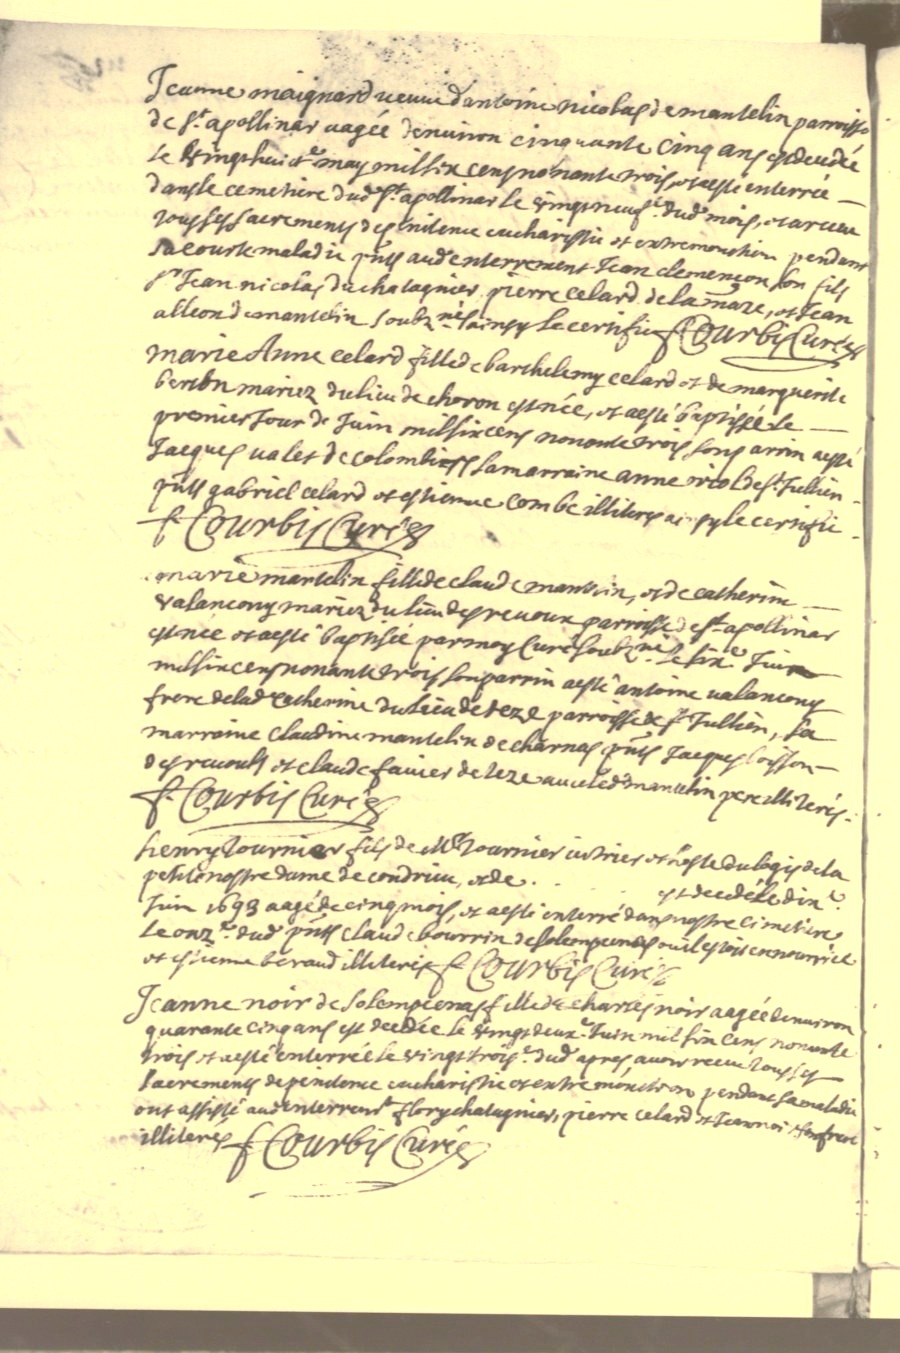 Jeanne maignard veuve d'antoine nicolas de mantelin parroisse
de St apollinar aagée denviron cinquante cinq ans est decedée
le vingt huict.e may mil six cens nonante trois, et a esté enterrée
dans le cemetiere dud St apollinar le vingt neuf.e dud mois, et a receu
tous ses sacrements de penitence eucharistie et extremonction pendant
sa courte maladie pnts aud enterrement Jean clemençon son fils
Sr Jean nicolas du chatagnier, pierre celard de la maze, et Jean
alleon de mantelin soubz.nés ainsy le certifie f Courbis Curé
marie Anne celard fille de barthelemy celard et de marguerite
berthon mariez du lieu de choron est née, et a esté baptisée le
premier Jour de Juin mil six cens nonante trois son parrin a esté
Jacques valet de colombier sa marraine anne de St Jullien
pnts gabriel celard et estienne combe illiteres ainsy le certifie
f. Courbis Curé
marie mantelin fille de claude mantelin, et de catherine
valancony mariez du lieu des revoux parroisse de St apollinar
est née et a esté baptisée par moy Curé soubz.né le six.e Juin
mil six cens nonante trois son parrin a esté antoine valancony
frere de lad catherine du lieu de teze parroisse de St Jullien, sa
marraine claudine mantelin de charnas pnts Jacques boisson
des revoults et claude favier de teze avec led mantelin pere illiterés.
f. Courbis Curé
henry tournier fils de Mr tournier et hoste du logis de la
petite nostre dame de condrieu, et de . est decedé le dix.e
Juin 1693 aagé de cinq mois, et a esté enterré dans nostre cimetiere
le onz.e dud pnts claude bourrin de solempeenas ou il estoit en nourrice
et estienne beraud illiteris f Courbis Curé
Jeanne noir de solempeenas fille de charles noir aagée denviron
quarante cinq ans est decedée le vingt deux.e Juin mil six cens nonante
trois et a esté enterrée le vingt trois.e dud apres avoir receu tous ses
sacrements de penitence eucharistie et extremonction pendant sa maladie
ont assisté aud enterremt flory chatagnier, pierre celard et Jean noir son frere
illiterés f Courbis Curé